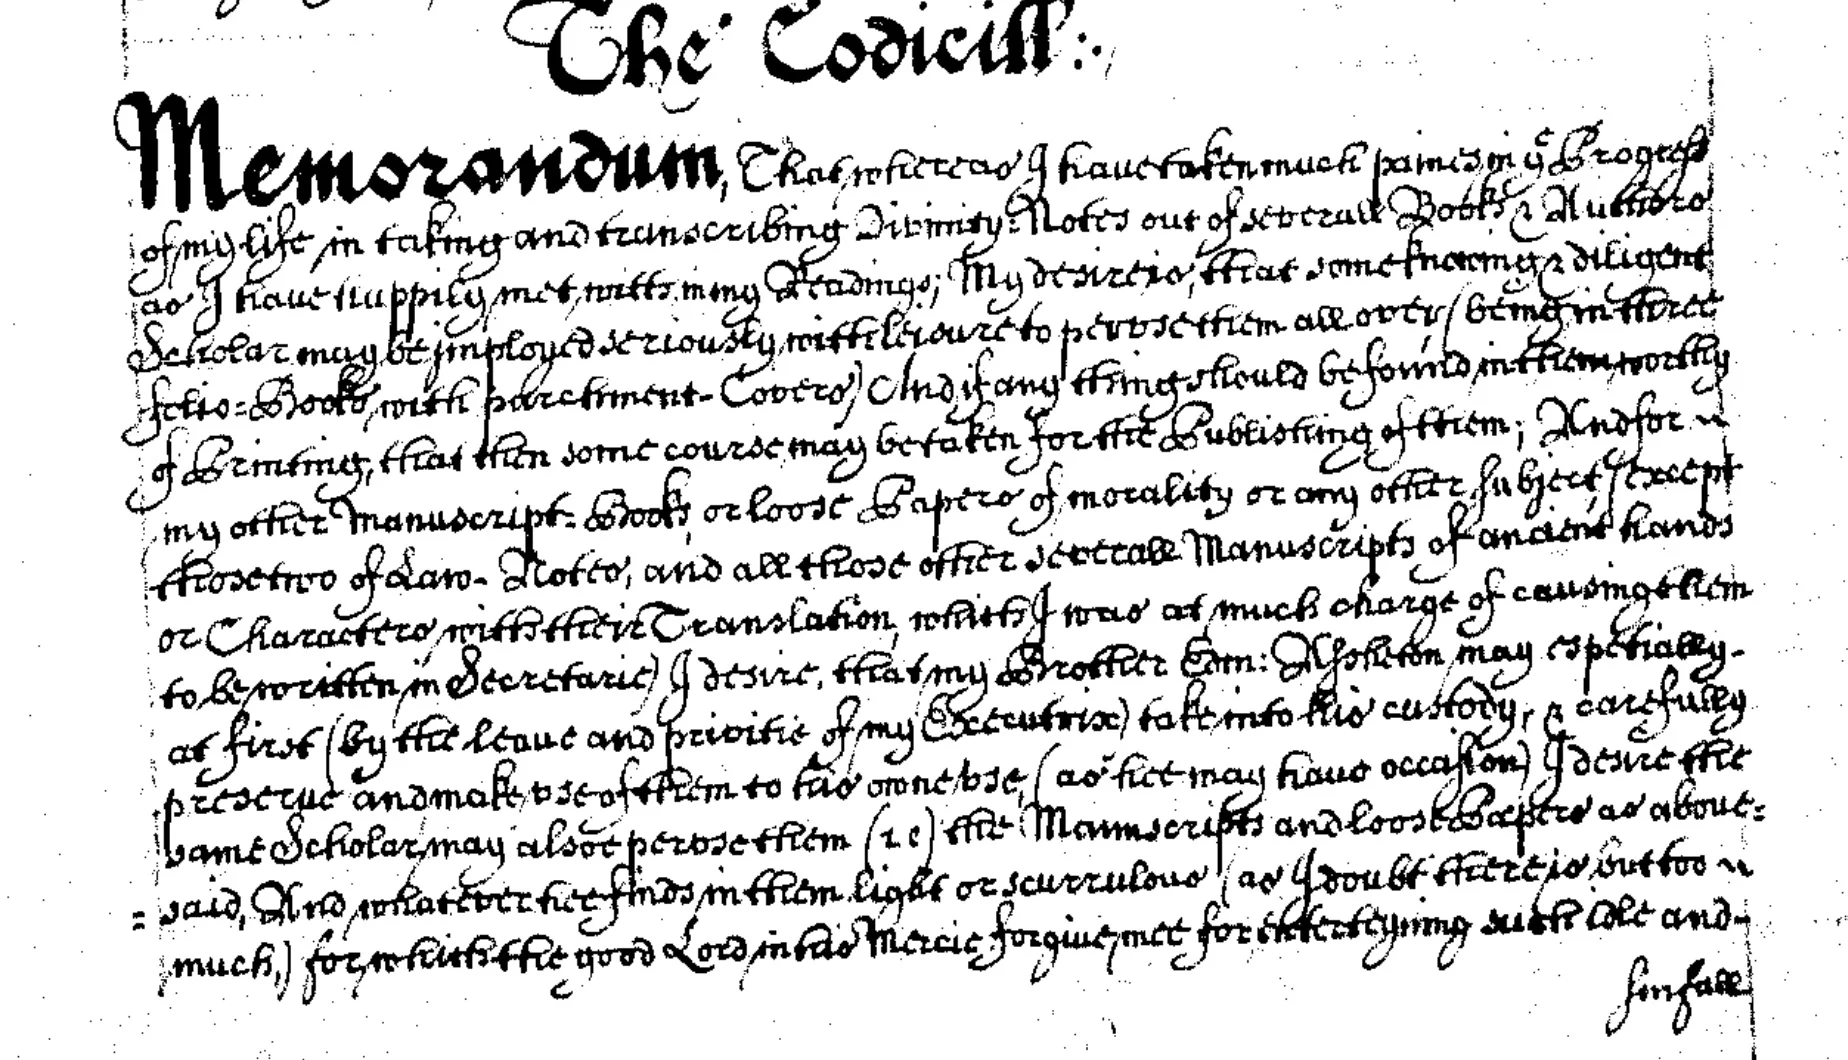 The Codicill:.
Memorandum, That whereas I have taken much paines in yͤ Progress
of my life in taking and transcribing Divinity=Notes out of severall Books & Authors
as I have happily met with in my Readings; My desire is, that some knowing & diligent
Scholar may be imployed seriously with leisure to pervse them all over (being in three
folio=Books with parchment-Covers) And if any thing should be found in them worthy
of Printing, that then some course may be taken for the Publishing of them; And for
my other Manuscript=Books or loose Papers of morality or any other subject (except
those two of Law-Notes, and all those other severall Manuscripts of ancient hands
or Characters with their Translation which I was at much charge of causing them
to be written in Secretarie) I desire, that my Brother Edm: Assheton may espetially-
at first (by the leave and privitie of my Executrix) take into his custody, & carefully
preserve and make vse of them to his owne vse, (as hee may have occasion) I desire the
same Scholar may alsoe pervse them (i e) the Manuscripts and loose Papers as above=
=said, And whatever hee finds in them light or scurrulous (as I doubt there is but too
much,) for which the good Lord in his Mercie forgive mee for enterteyning such idle and-
sinfull